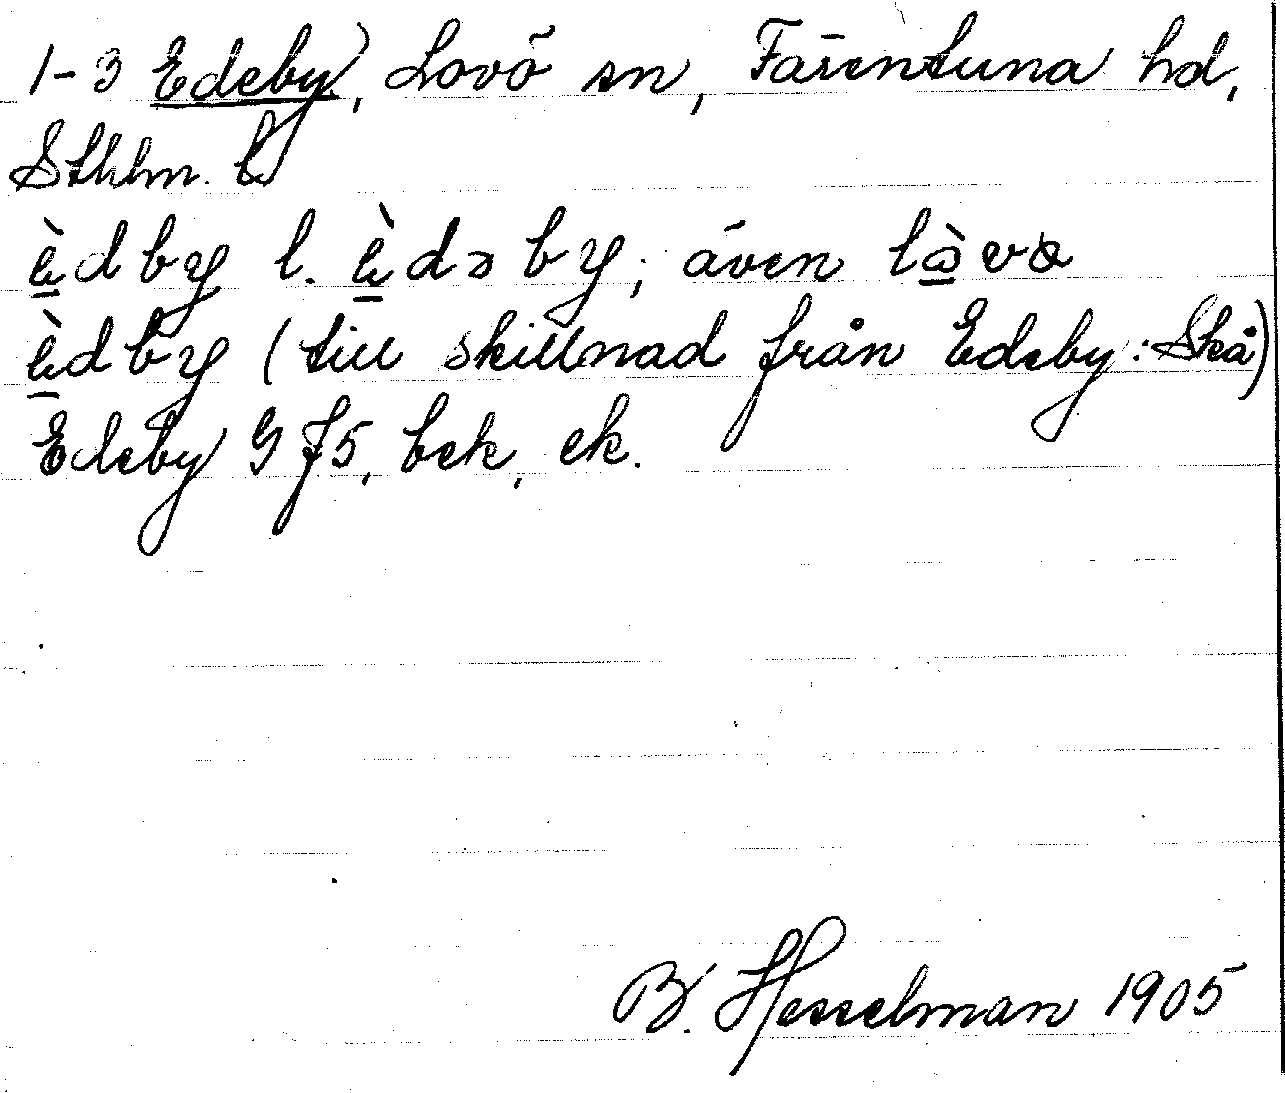 1-3 Edeby, Lovö sn, Färentuna hd,
Sthlm. l
èdby l. èdəby; även làvø
èdby (till skillnad från Edeby: Skå)
Edeby G J5, bek, ek.
B. Hesselman 1905